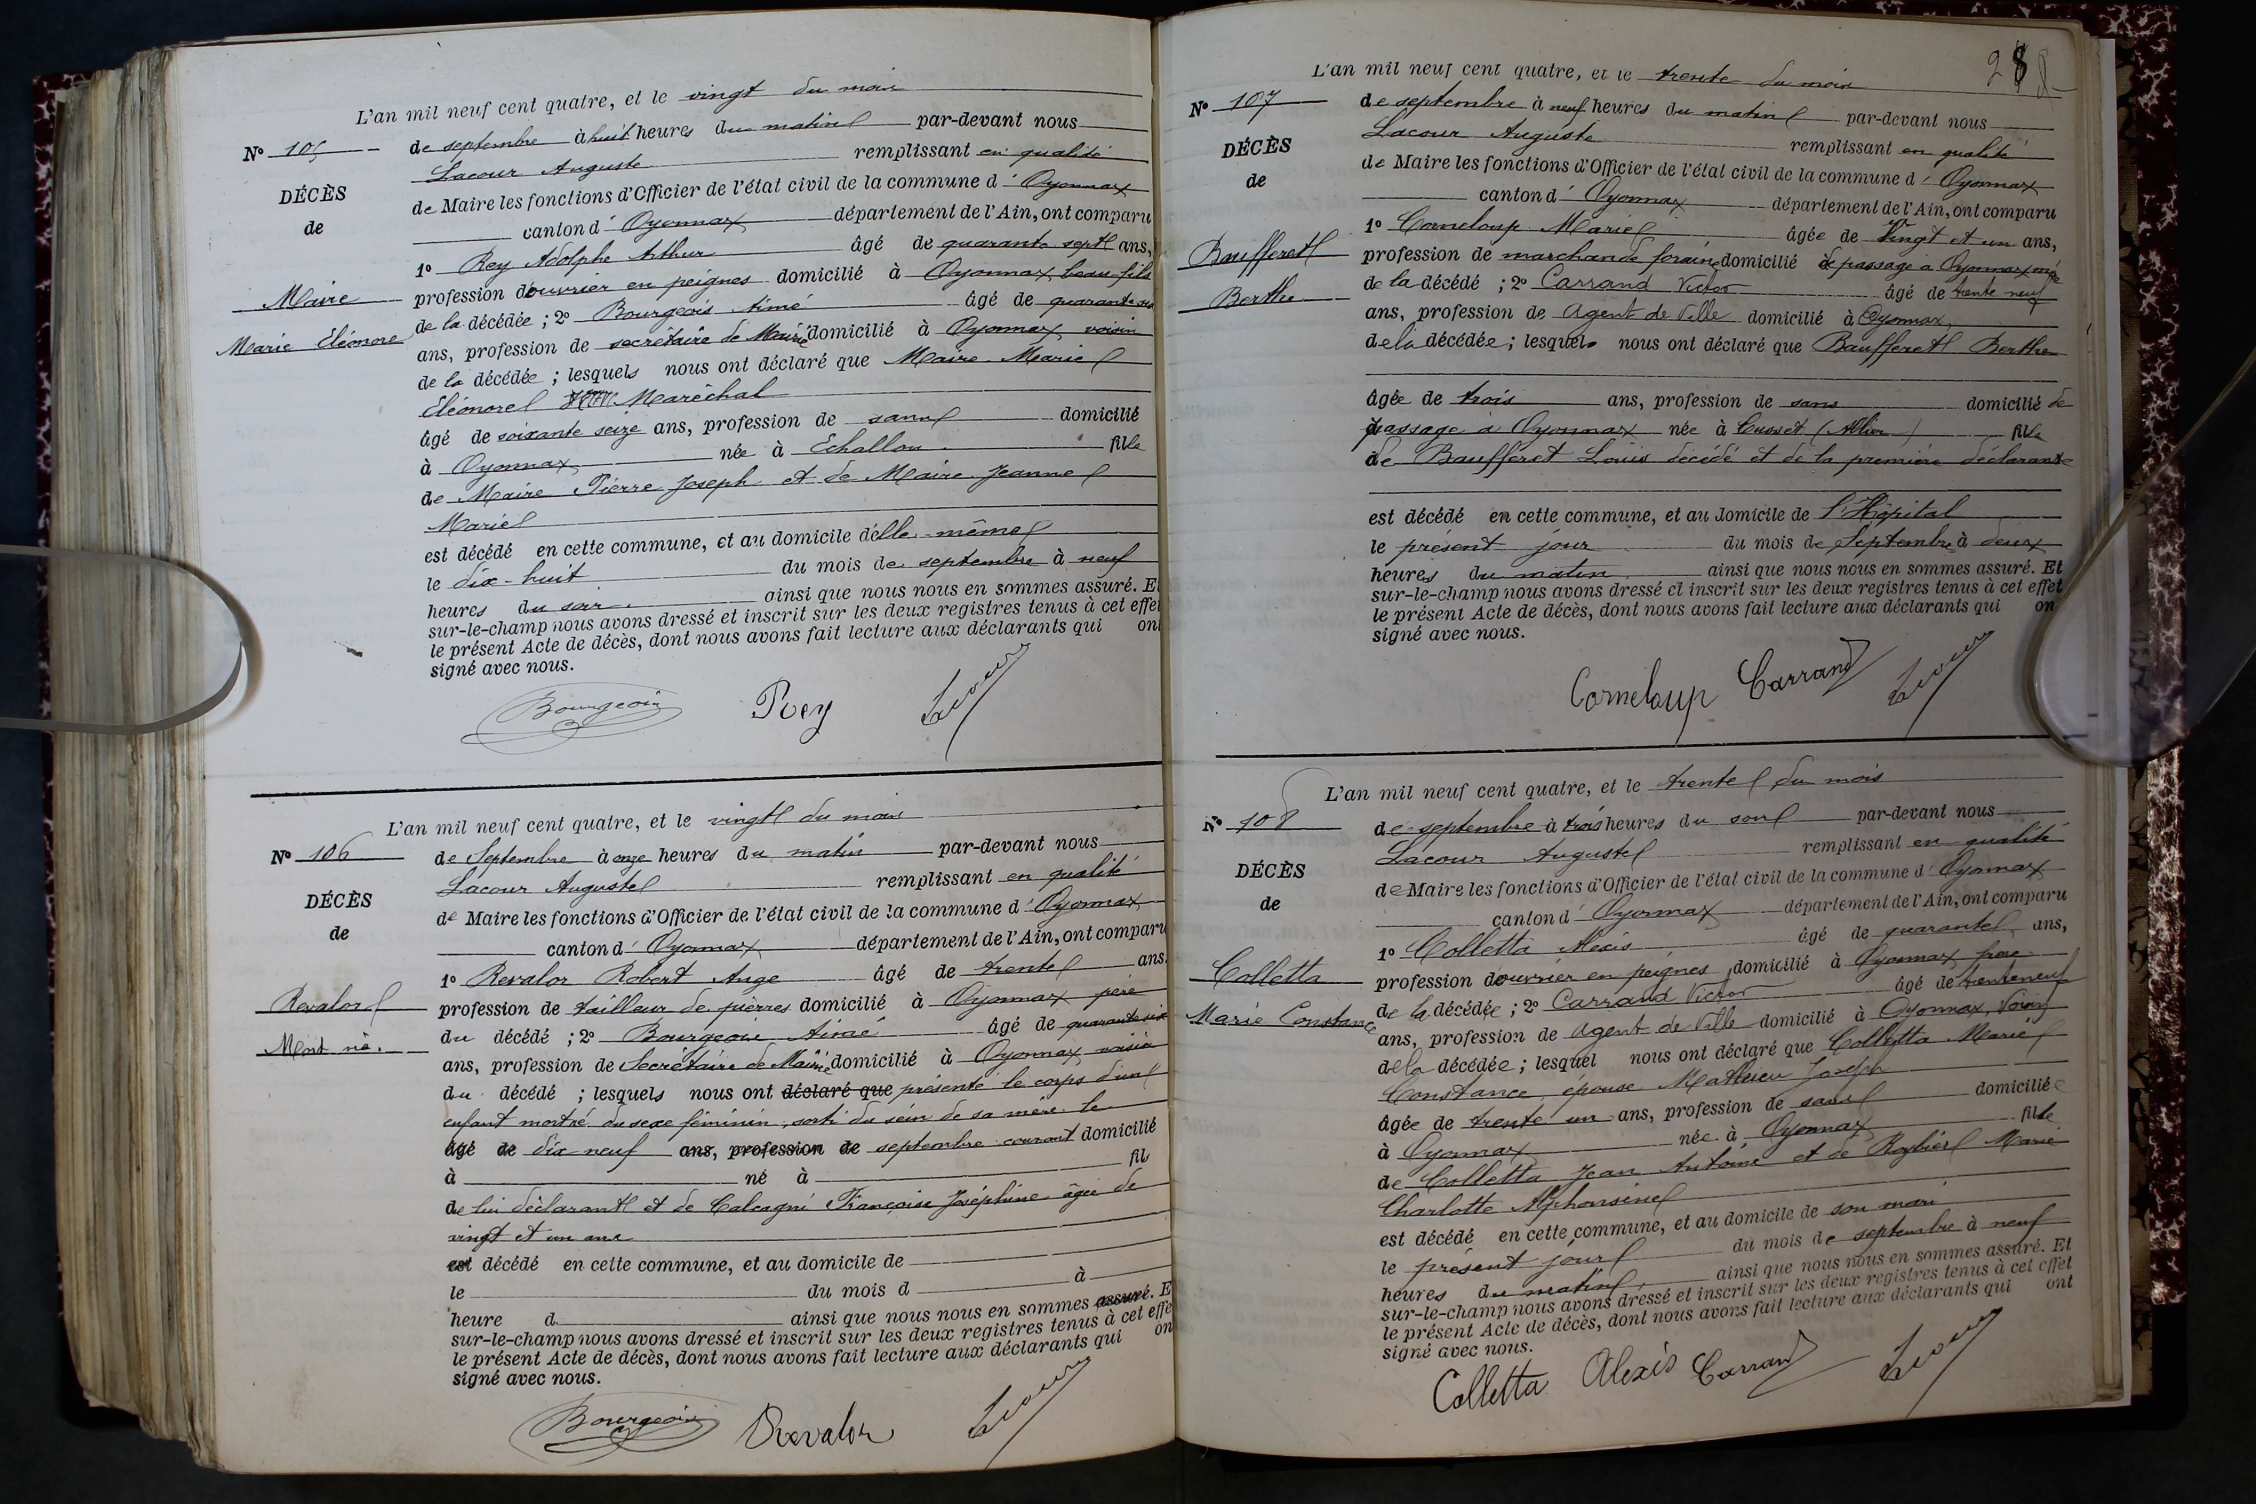 L'an mil neuf cent quatre, et le vingt du mois
No 105
de septembre à huit heures du matin par-devant nous
Lacour Auguste remplissant en qualité
DÉCÈS
de Maire les fonctions d'Officier de l'état civil de la commune d' Oyonnax
de
canton d' Oyonnax département de l'Ain, ont comparu
1o Rey Adolphe Arthur âgé de quarante sept ans,
Maire
profession d'ouvrier en peignes domicilié à Oyonnax, beau-fils
Marie Eléonore
de la décédée ; 2o Bourgeois Aimé âgé de quarante six
ans, profession de secrétaire de Mairie domicilié à Oyonnax, voisin
de la décédée ; lesquels nous ont déclaré que Maire Marie
Eléonore Maréchal
âgé de soixante seize ans, profession de sans domicilié
à Oyonnax née à Echallon fille
de Maire Pierre Joseph et de Maire Jeanne
Marie
est décédé en cette commune, et au domicile d'elle-même
le dix-huit du mois de septembre à neuf
heures du soir ainsi que nous nous en sommes assuré. Et
sur-le-champ nous avons dressé et inscrit sur les deux registres tenus à cet effet
le présent Acte de décès, dont nous avons fait lecture aux déclarants qui ont
signé avec nous.
Bourgeois Rey Lacour
L'an mil neuf cent quatre, et le vingt du mois
No 106
de Septembre à onze heures du matin par-devant nous
Lacour Auguste remplissant en qualité
DÉCÈS
de Maire les fonctions d'Officier de l'état civil de la commune d' Oyonnax
de
canton d' Oyonnax département de l'Ain, ont comparu
1o Revalor Robert Ange âgé de trente ans
Revalor
profession de tailleur de pierres domicilié à Oyonnax père
Mort né.
du décédé ; 2o Bourgeois Aimé âgé de quarante six
ans, profession de Secrétaire de Mairie domicilié à Oyonnax, voisin
du décédé ; lesquels nous ont déclaré que présenté le corps d'un
enfant mort né du sexe féminin, sorti du sein de sa mère le
âgé de dix neuf ans, profession de septembre courant domicilié
à né à fil
de lui déclarant et de Calcagni Françoise Joséphine âgée de
vingt et un ans
est décédé en cette commune, et au domicile de
le du mois d à
heure d ainsi que nous nous en sommes assuré. E
sur-le-champ nous avons dressé et inscrit sur les deux registres tenus à cet effe
le présent Acte de décès, dont nous avons fait lecture aux déclarants qui on
signé avec nous.
Bourgeois Revalor Lacour
288
L'an mil neuf cent quatre, et le trente du mois
No 107
de septembre à neuf heures du matin par-devant nous
Lacour Auguste remplissant en qualité
DÉCÈS
de Maire les fonctions d'Officier de l'état civil de la commune d' Oyonnax
de
canton d' Oyonnax département de l'Ain, ont comparu
1o Corneloup Marie âgée de Vingt et un ans,
Baufferet
profession de marchande foraine domicilié de passage à Oyonnax, mère
Berthe
de la décédé ; 2o Carrand Victor âgé de trente neuf
ans, profession de Agent de Ville domicilié à Oyonnax,
de la décédée ; lesquels nous ont déclaré que Baufferet Berthe
âgée de trois ans, profession de sans domicilié de
passage à Oyonnax née à Cusset (Allier) fille
de Baufféret Louis décédé et de la première déclarante
est décédé en cette commune, et au domicile de l'Hôpital
le présent jour du mois de Septembre à deux
heures du matin ainsi que nous nous en sommes assuré. Et
sur-le-champ nous avons dressé et inscrit sur les deux registres tenus à cet effet
le présent Acte de décès, dont nous avons fait lecture aux déclarants qui on
signé avec nous.
Corneloup Carrand Lacour
L'an mil neuf cent quatre, et le trente du mois
No 108
de septembre à trois heures du soir par-devant nous
Lacour Auguste remplissant en qualité
DÉCÈS
de Maire les fonctions d'Officier de l'état civil de la commune d' Oyonnax
de
canton d' Oyonnax département de l'Ain, ont comparu
1o Colletta Alexis âgé de quarante ans,
Colletta
profession d'ouvrier en peignes domicilié à Oyonnax, frère
Marie Constance
de la décédée ; 2o Carrand Victor âgé de trente neuf
ans, profession de agent de Ville domicilié à Oyonnax, Voisin
de la décédée ; lesquel nous ont déclaré que Colletta Marie
Constance, épouse Mathieu Joseph
âgée de trente un ans, profession de sans domiciliée
à Oyonnax née à Oyonnax fille
de Colletta Jean Antoine et de Marie
Charlotte Alphonsine
est décédé en cette commune, et au domicile de son mari
le présent jour du mois de septembre à neuf
heures du matin ainsi que nous nous en sommes assuré. Et
sur-le-champ nous avons dressé et inscrit sur les deux registres tenus à cet effet
le présent Acte de décès, dont nous avons fait lecture aux déclarants qui ont
signé avec nous.
Colletta Alexis Carrand Lacour